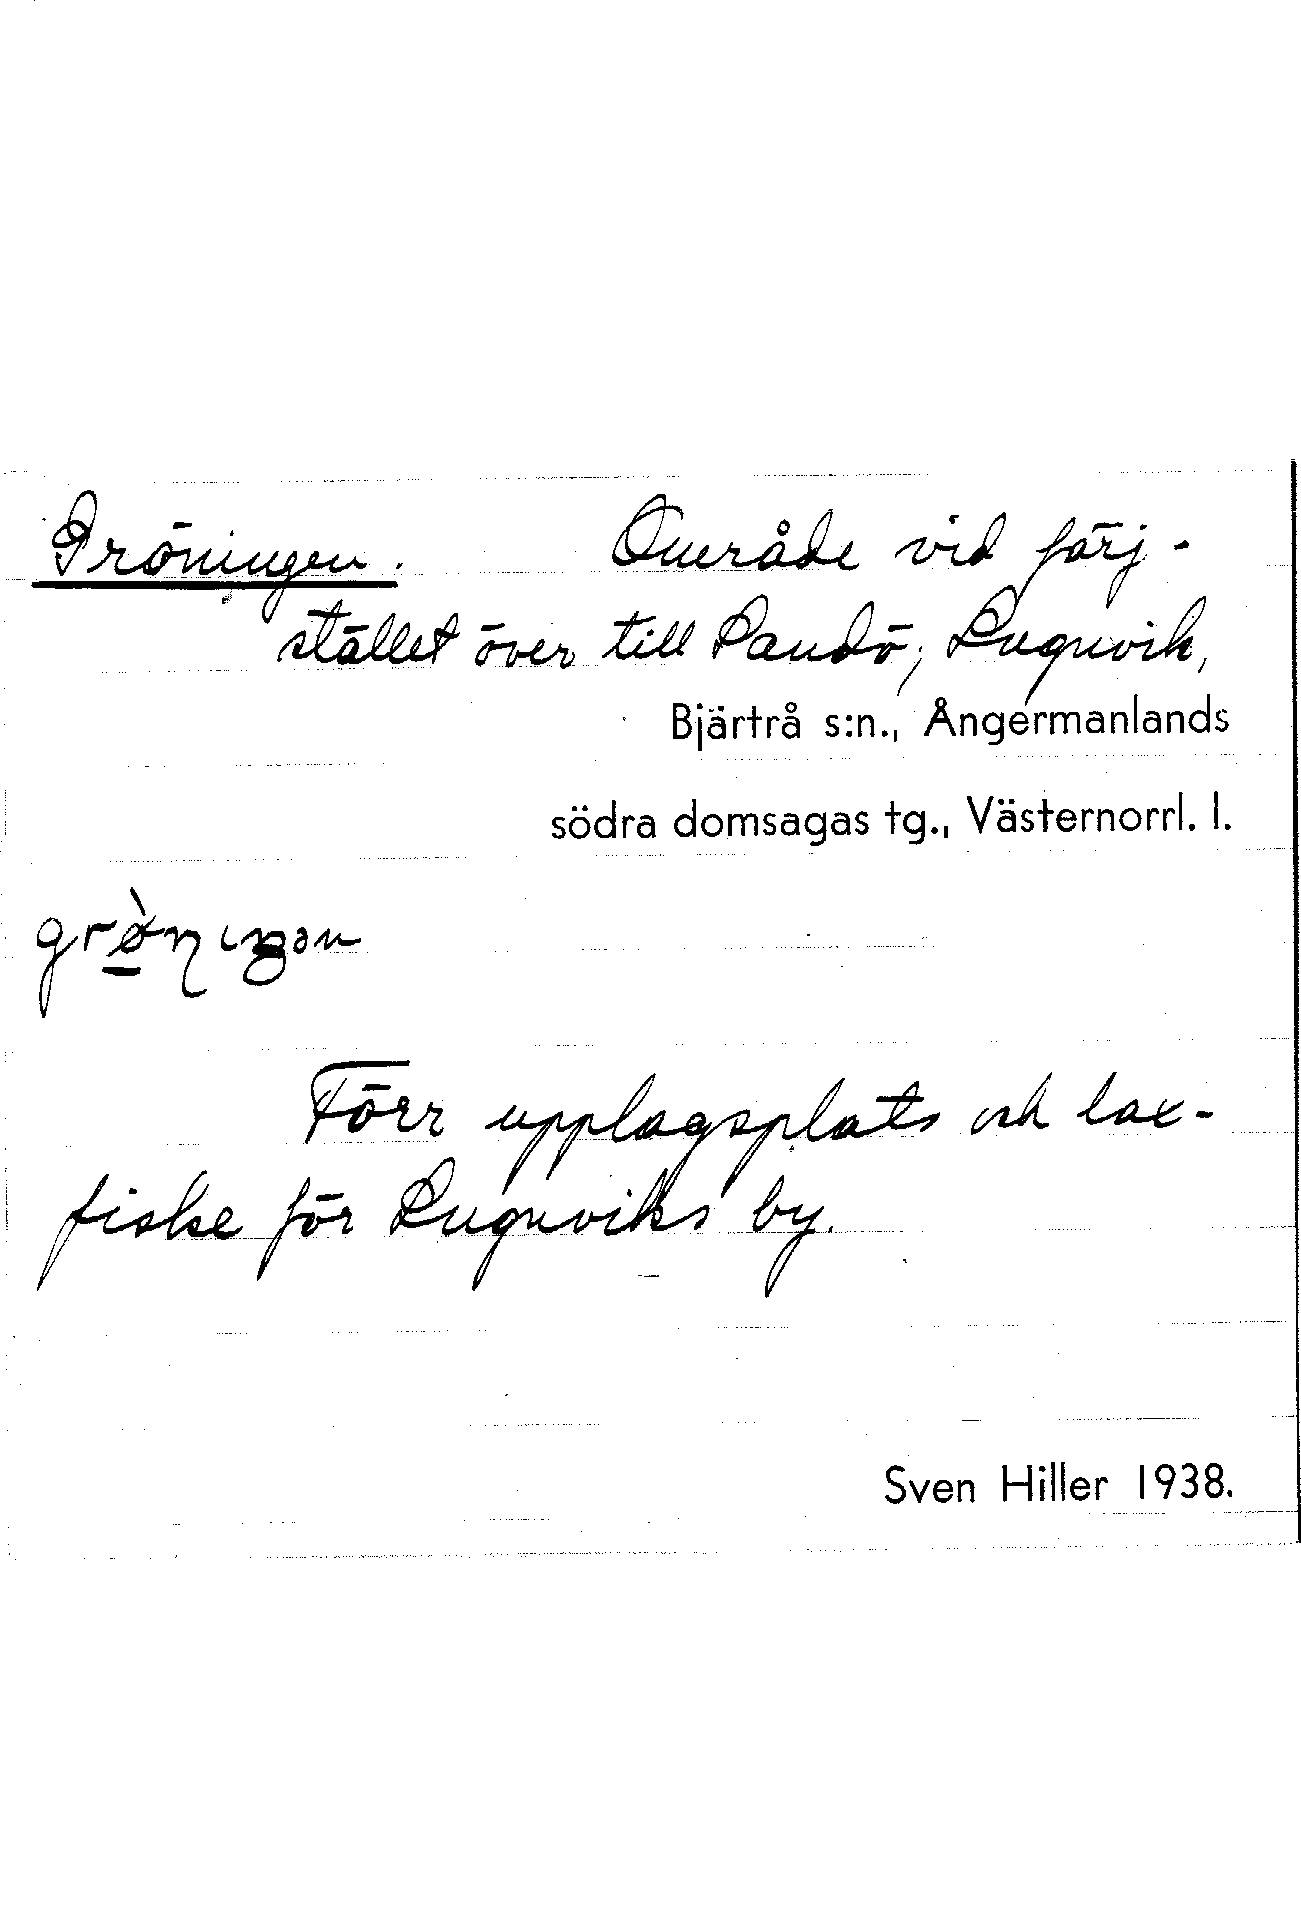 Gröningen. Område vid färj-
stället över till Sandö, Lugnvik,
Bjärtrå s:n., Ångermanlands
södra domsagas tg., Västernorrl. l.
Förr upplagsplats och lax-
fiske för Lugnviks by.
Sven Hiller 1938.